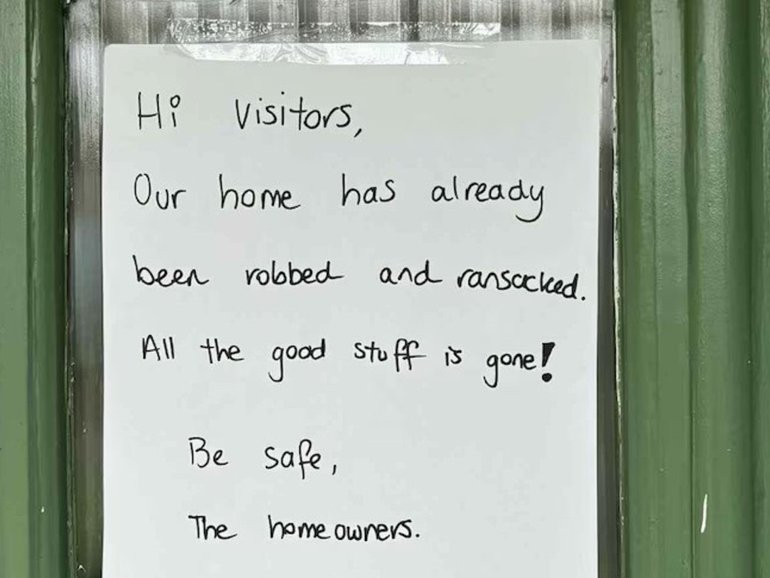 Hi Visitors,
Our home has already
been robbed and ransacked.
All the good stuff is gone!
Be safe,
The homeowners.